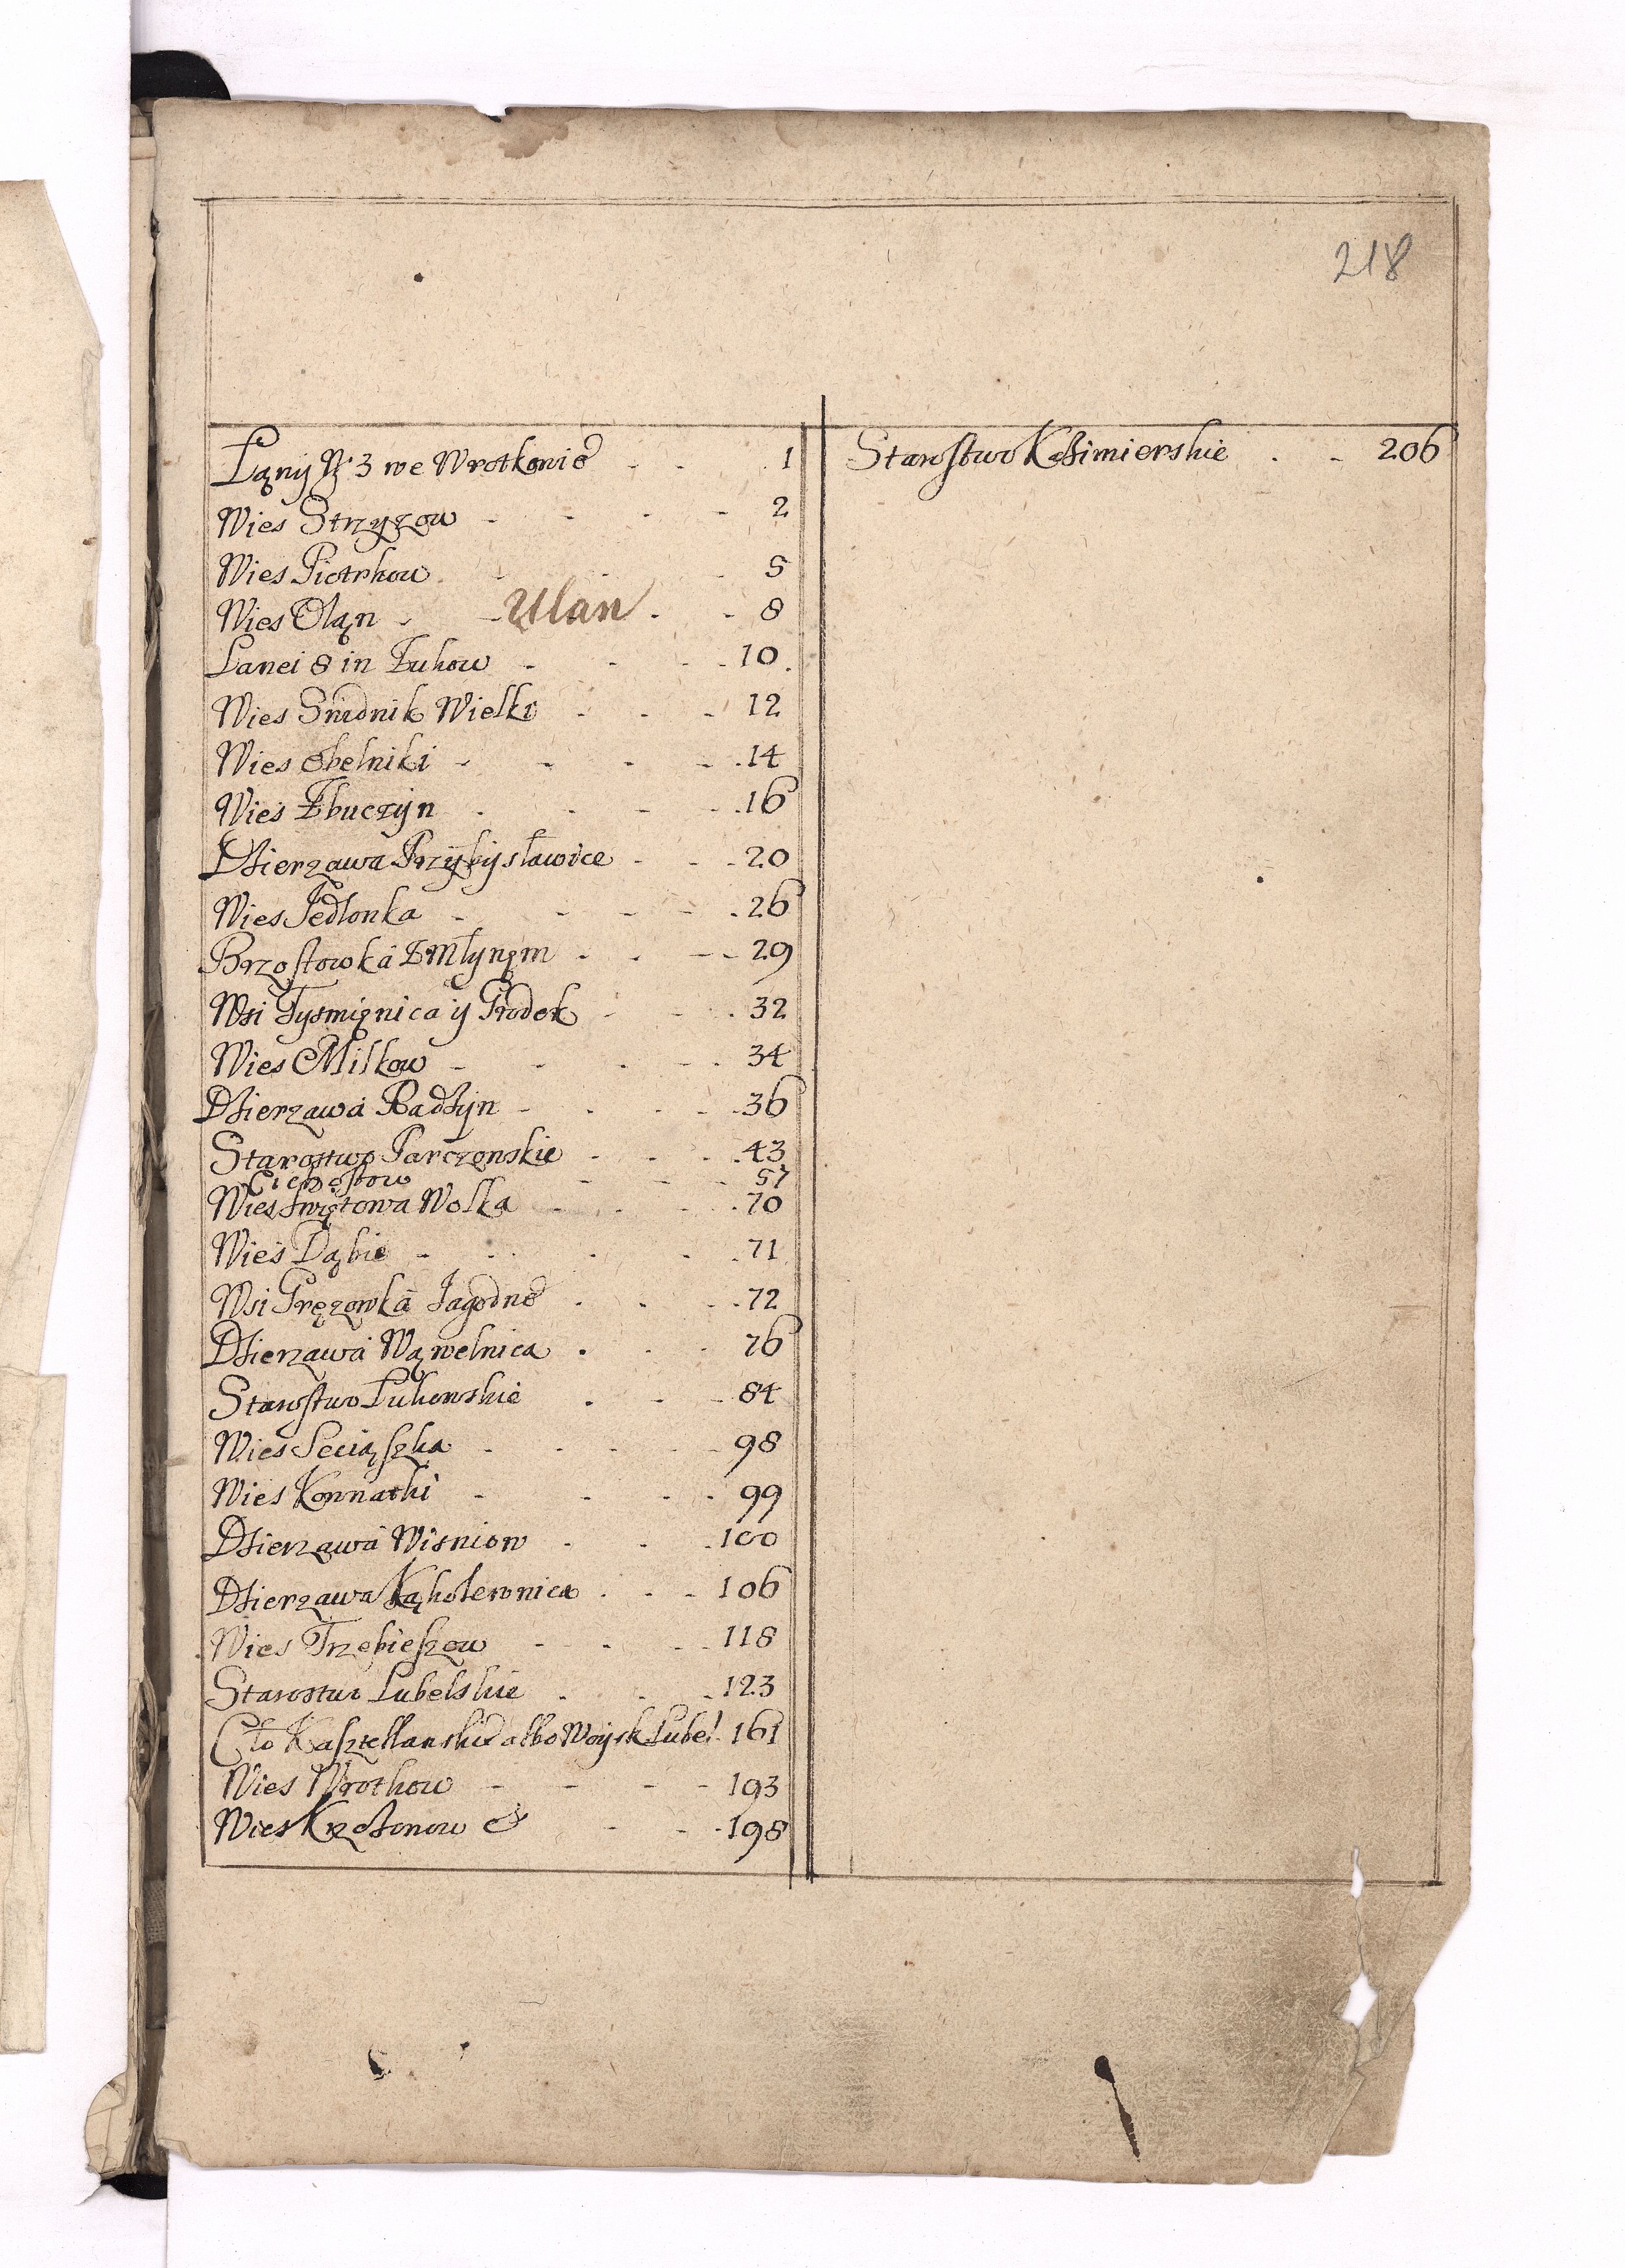 218
Łąny N 3 we Wrotkowie 1
Wies Strzyzow 2
Wies Piotrkow 5
Wies Oląn Ulan 8
Lanei 8 in Łukow 10
Wies Swidnik Wielki 12
Wies Obelniki 14
Wies Zbuczyn 16
Dzierzawa Przybysławice 20
Wies Jedlonka 26
Brzostowka z Młynem 29
Wsi Tysmięnica ÿ Grodek 32
Wies Milkow 34
Dzierzawa Radzyn 36
Starostwo Parczenskie 43
Ciczostow 57
Wies Swiętowa Wolka 70
Wies Dąbie 71
Wsi Gręzowka Jagodne 72
Dzierzawa Wąwelnica 76
Starostwo Lukowskie 84
Wies Sciąszka 98
Wies Kownatki 99
Dzierzawa Wisniow 100
Dzierzawa Kąkolewnica 106
Wies Trzebieszow 118
Starostwo Lubelskie 123
Cło Kasztellanskie albo Woysk Lubel. 161
Wies Wrotkow 193
Wies Krzczonow & 198
Starostwo Kazimierskie 206